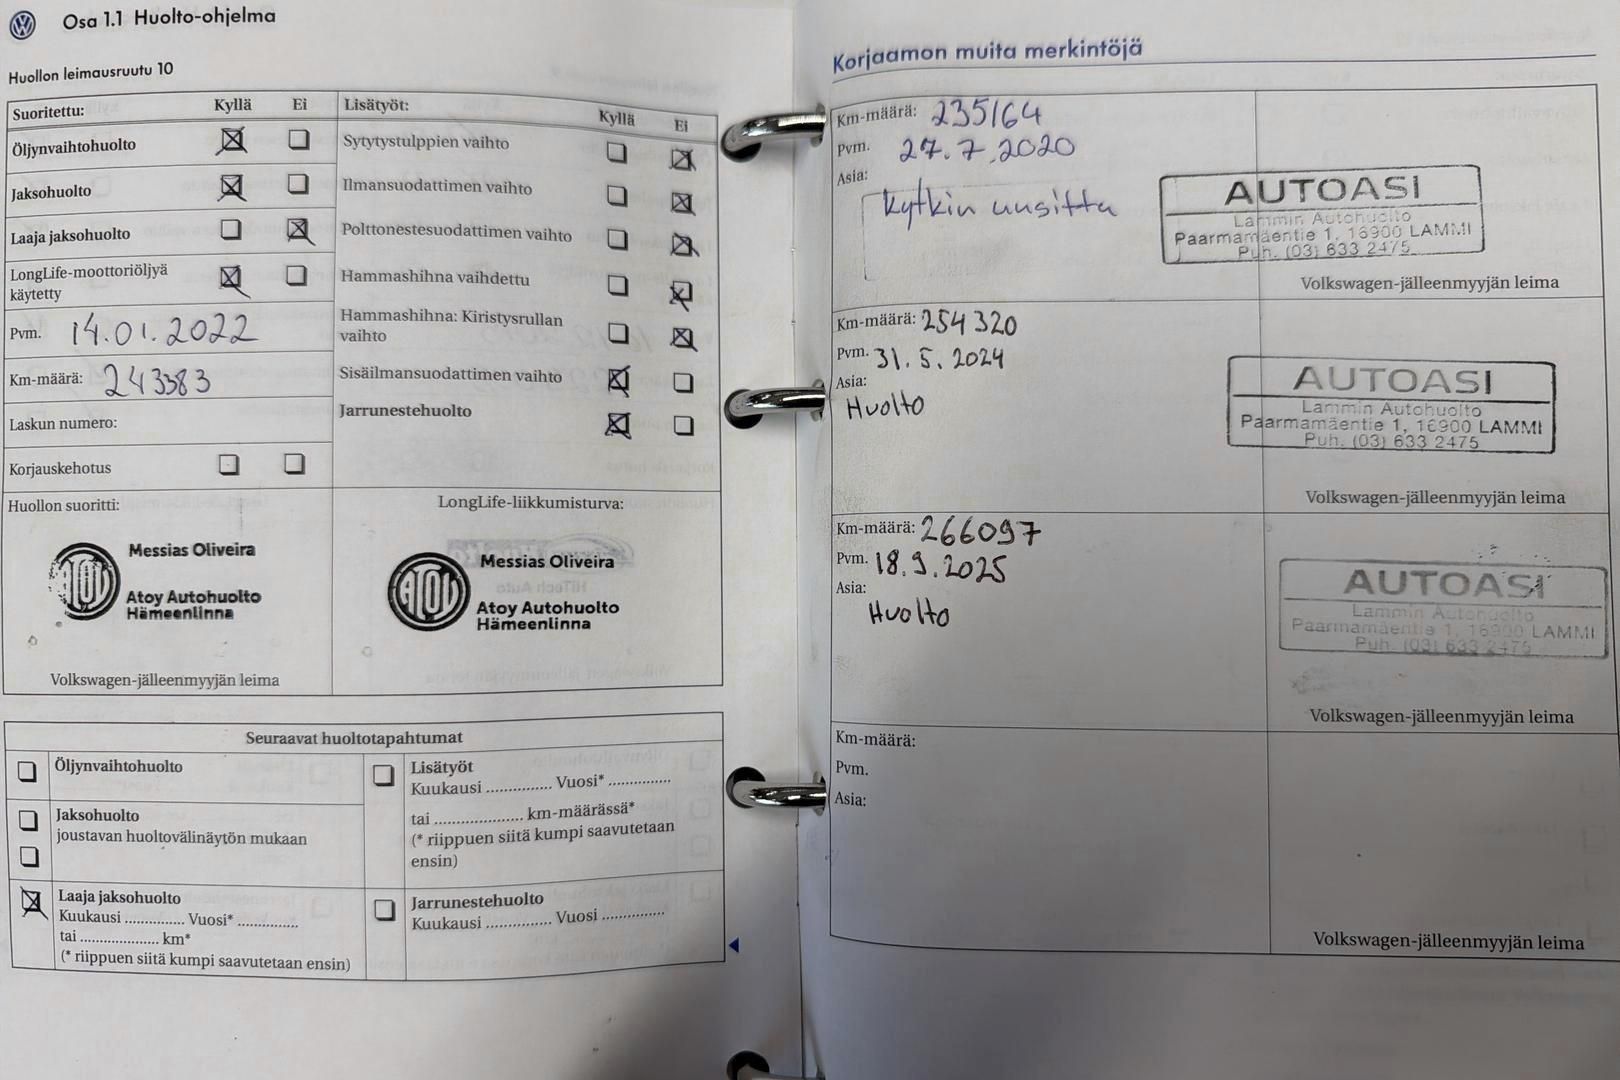 Osa 1.1 Huolto-ohjelma
Huollon leimausruutu 10
Suoritettu: Kyllä Ei
Öljynvaihtohuolto
Jaksohuolto
Laaja jaksohuolto
LongLife-moottoriöljyä
käytetty
Pvm. 14.01.2022
Km-määrä: 243383
Laskun numero:
Korjauskehotus
Lisätyöt: Kyllä Ei
Sytytystulppien vaihto
Ilmansuodattimen vaihto
Polttonestesuodattimen vaihto
Hammashihna vaihdettu
Hammashihna: Kiristysrullan
vaihto
Sisäilmansuodattimen vaihto
Jarrunestehuolto
Huollon suoritti:
ATOY
Messias Oliveira
Atoy Autohuolto
Hämeenlinna
Volkswagen-jälleenmyyjän leima
LongLife-liikkumisturva:
ATOY
Messias Oliveira
Atoy Autohuolto
Hämeenlinna
Seuraavat huoltotapahtumat
Öljynvaihtohuolto
Jaksohuolto
joustavan huoltovälinäytön mukaan
Laaja jaksohuolto
Kuukausi ............... Vuosi* ...............
tai .................... km*
(* riippuen siitä kumpi saavutetaan ensin)
Lisätyöt
Kuukausi ............... Vuosi* ...............
tai .................... km-määrässä*
(* riippuen siitä kumpi saavutetaan
ensin)
Jarrunestehuolto
Kuukausi ............... Vuosi ...............
Korjaamon muita merkintöjä
Km-määrä: 235164
Pvm. 27.7.2020
Asia:
Kytkin uusittu
AUTOASI
Lammin Autohuolto
Paarmamäentie 1, 16900 LAMMI
Puh. (03) 633 2475
Volkswagen-jälleenmyyjän leima
Km-määrä: 254320
Pvm. 31.5.2024
Asia:
Huolto
AUTOASI
Lammin Autohuolto
Paarmamäentie 1, 16900 LAMMI
Puh. (03) 633 2475
Volkswagen-jälleenmyyjän leima
Km-määrä: 266097
Pvm. 18.9.2025
Asia:
Huolto
AUTOASI
Lammin Autohuolto
Paarmamäentie 1, 16900 LAMMI
Puh. (03) 633 2475
Volkswagen-jälleenmyyjän leima
Km-määrä:
Pvm.
Asia:
Volkswagen-jälleenmyyjän leima